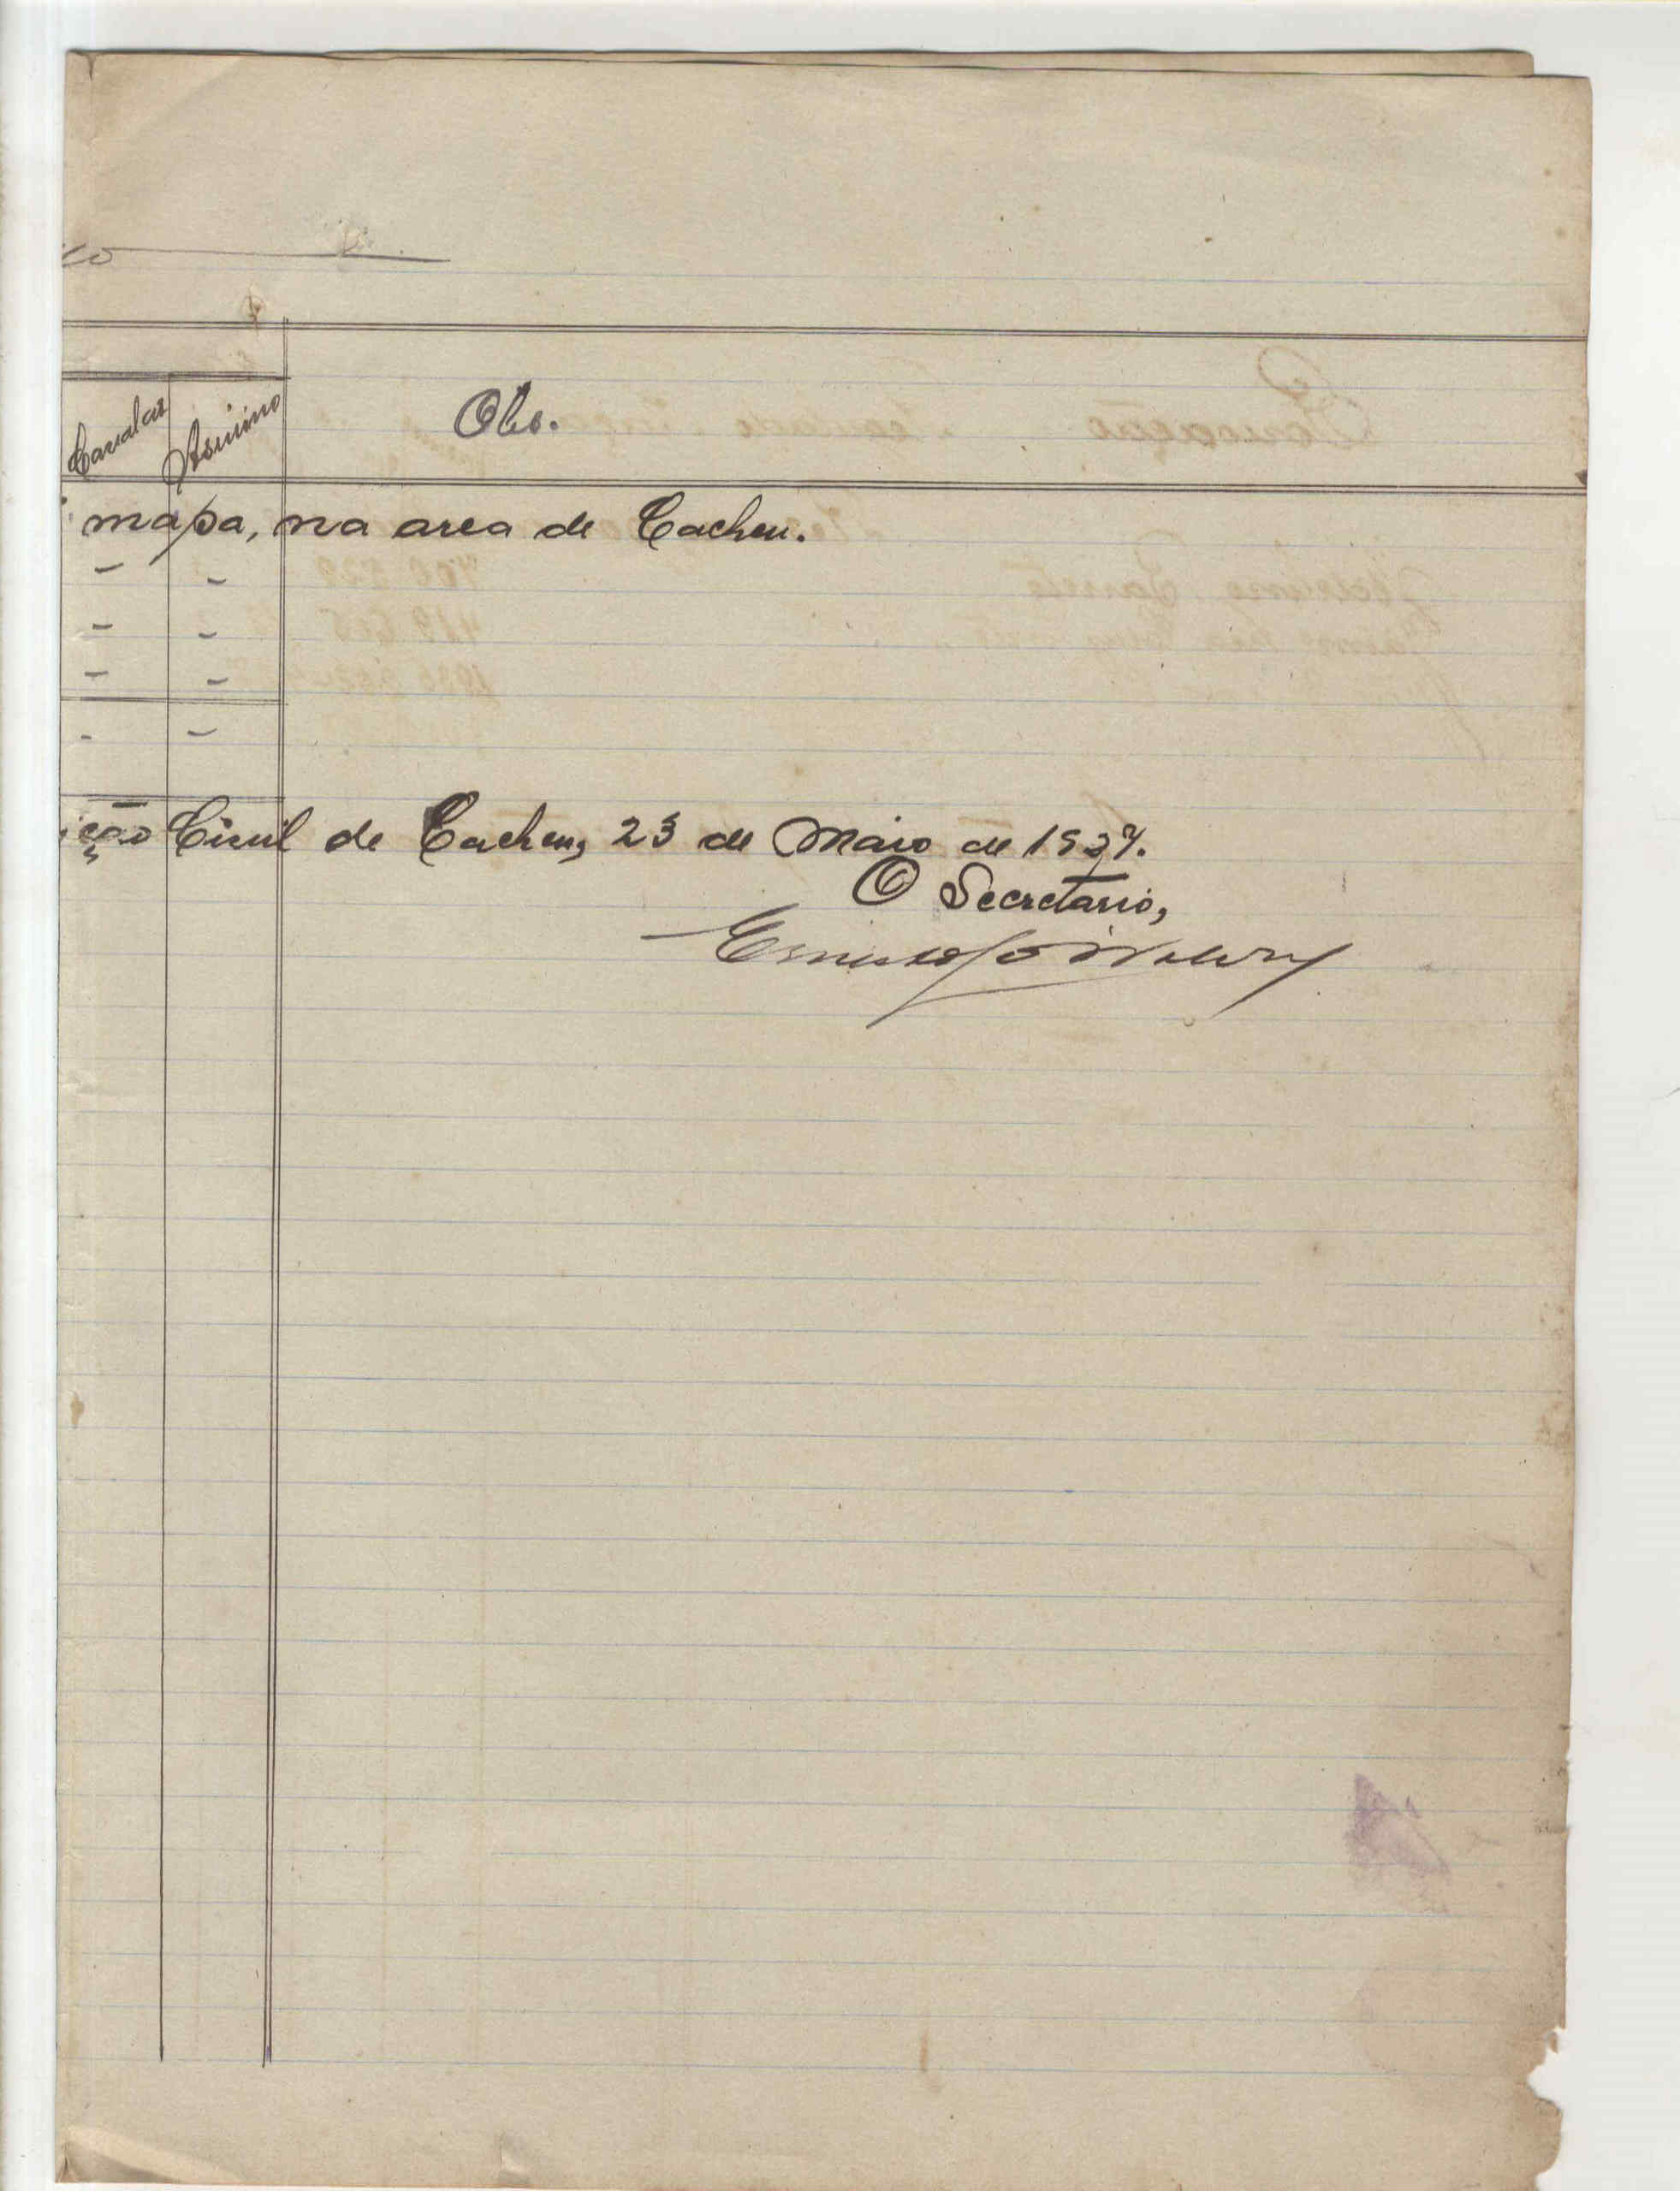 Cavalar Asinino Obs.
mapa, na area de Cacheu.
- -
- -
- -
- -
ição Civil de Cacheu, 23 de Maio de 1927.
O Secretario,